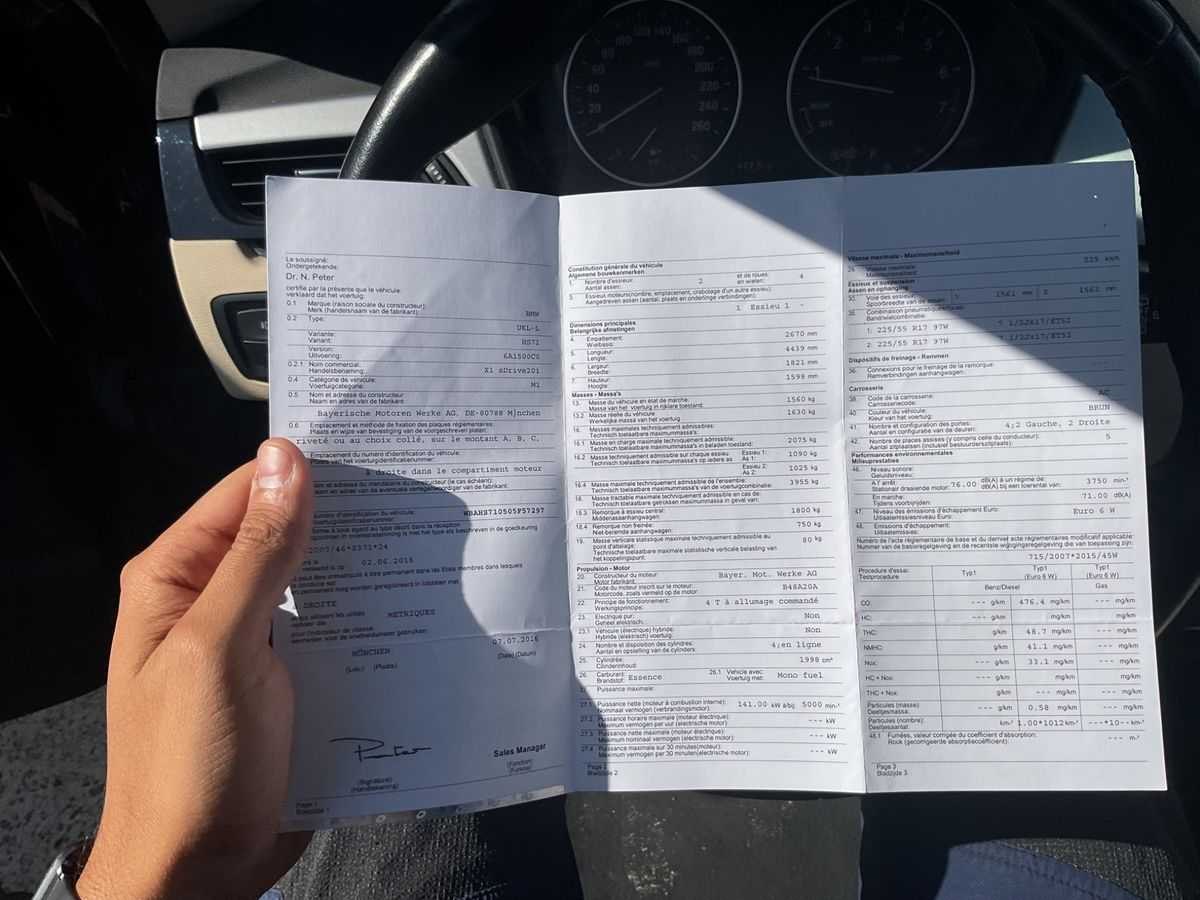 Le soussigné:
Ondergetekende:
Dr. N. Peter
certifie par la présente que le véhicule:
verklaard dat het voertuig:
0.1 Marque (raison sociale du constructeur):
Merk (handelsnaam van de fabrikant): BMW
0.2 Type:
UKL-L
Variante:
Variant: HS71
Version:
Uitvoering: 6A1500C5
0.2.1 Nom commercial:
Handelsbenaming: X1 sDrive20i
0.4 Catégorie de véhicule:
Voertuigcategorie: M1
0.5 Nom et adresse du constructeur
Naam en adres van de fabrikant
Bayerische Motoren Werke AG, DE-80788 M}nchen
0.6 Emplacement et méthode de fixation des plaques réglementaires:
Plaats en wijze van bevestiging van de voorgeschreven platen:
riveté ou au choix collé, sur le montant A, B, C,
Emplacement du numéro d'identification du véhicule:
Plaats van het voertuigidentificatienummer:
à droite dans le compartiment moteur
et adresse du mandataire du constructeur (le cas échéant):
en adres van de eventuele vertegenwoordiger van de fabrikant:
d'identification du véhicule:
02.06.2016
DROITE
METRIQUES
MÜNCHEN
07.07.2016
(Lieu) (Plaats)
(Date) (Datum)
Sales Manager
(Signature)
(Handtekening)
(Fonction)
(Functie)
Page 1
Bladzijde 1
Constitution générale du véhicule
Algemene bouwkenmerken
1. Nombre d'essieux: 2 et de roues: 4
Aantal assen: en wielen:
3. Essieux moteurs(nombre, emplacement, crabotage d'un autre essieu):
Aangedreven assen (aantal, plaats en onderlinge verbindingen):
1 Essieu 1 -
Dimensions principales
Belangrijke afmetingen
4. Empattement: 2670 mm
Wielbasis:
5. Longueur: 4439 mm
Lengte:
6. Largeur: 1821 mm
Breedte:
7. Hauteur: 1598 mm
Hoogte:
Masses - Massa's
13. Masse du véhicule en état de marche: 1560 kg
Massa van het voertuig in rijklare toestand:
13.2 Masse réelle du véhicule 1630 kg
Werkelijke massa van het voertuig
16. Masses maximales techniquement admissibles:
Technisch toelaatbare maximummassa's:
16.1 Masse en charge maximale techniquement admissible: 2075 kg
Technisch toelaatbare maximummassa's in beladen toestand:
16.2 Masse techniquement admissible sur chaque essieu Essieu 1: 1090 kg
Technisch toelaatbare maximummassa's op iedere as As 1:
Essieu 2: 1025 kg
As 2:
16.4 Masse maximale techniquement admissible de l'ensemble: 3955 kg
Technisch toelaatbare maximummassa's van de voertuigcombinatie:
18. Masse tractable maximale techniquement admissible en cas de:
Technisch toelaatbare getrokken maximummassa in geval van:
18.3 Remorque à essieu central: 1800 kg
Middenasaanhangwagen:
18.4 Remorque non freinée: 750 kg
Niet-beremde aanhangwagen:
19. Masse verticale statique maximale techniquement admissible au
point d'attelage: 80 kg
Technische toelaatbare maximale statistische verticale belasting van
het koppelingspunt:
Propulsion - Motor
20. Constructeur du moteur: Bayer. Mot. Werke AG
Motor fabrikant:
21. Code du moteur inscrit sur le moteur: B48A20A
Motorcode, zoals vermeld op de motor:
22. Principe de fonctionnement: 4 T à allumage commandé
Werkingsprincipe:
23. Electrique pur: Non
Geheel elektrisch:
23.1 Véhicule (électrique) hybride: Non
Hybride (elektrisch) voertuig:
24. Nombre et disposition des cylindres: 4;en ligne
Aantal en opstelling van de cylinders:
25. Cylindrée: 1998 cm³
Cilinderinhoud:
26. Carburant: Essence 26.1 Vehicle avec Mono fuel
Brandstof: Voertuig met:
27. Puissance maximale:
27.1 Puissance nette (moteur à combustion interne): 141.00 kW à/bij 5000 min-¹
Nominaal vermogen (verbrandingsmotor):
27.2 Puissance horaire maximale (moteur électrique): --- kW
Maximum vermogen per uur (electrische motor):
27.3 Puissance nette maximale (moteur électrique): --- kW
Maximum nominaal vermogen (electrische motor):
27.4 Puissance maximale sur 30 minutes(moteur): --- kW
Maximum vermogen per 30 minuten(electrische motor):
Page 2
Bladzijde 2
Vitesse maximale - Maximumsnelheid
29. Vitesse maximale: km/h
Maximumsnelheid:
Essieux et suspension
Assen en ophanging
30. Voie des essieux: 1: 1561 mm 2: 1562 mm
Spoorbreedte van de assen:
35. Combinaison pneumatique/roues:
Band/wielcombinatie:
1: 225/55 R17 97W 7 1/2Jx17/ET52
2: 225/55 R17 97W 7 1/2Jx17/ET52
Dispositifs de freinage - Remmen
36. Connexions pour le freinage de la remorque:
Remverbindingen aanhangwagen:
Carrosserie
38. Code de la carrosserie: AC
Carrosseriecode:
40. Couleur du véhicule: BRUN
Kleur van het voertuig:
41. Nombre et configuration des portes: 4;2 Gauche, 2 Droite
Aantal en configuratie van de deuren:
42. Nombre de places assises (y compris celle du conducteur): 5
Aantal zitplaatsen (inclusief bestuurderszitplaats):
Performances environnementales
Milieuprestaties
46. Niveau sonore:
Geluidsniveau:
A l'arrêt: 76.00 dB(A) à un régime de: 3750 min-¹
Stationair draaiende motor: dB(A) bij een toerental van:
En marche: 71.00 dB(A)
Tijdens voorbijrijden:
47. Niveau des émissions d'échappement Euro: Euro 6 W
Uitlaatemissieniveau Euro:
48. Emissions d'échappement:
Uitlaatemissies:
Numéro de l'acte réglementaire de base et du dernier acte réglementaire modificatif applicable:
Nummer van de basisregelgeving en de recentste wijzigingsregelgeving die van toepassing zijn:
715/2007*2015/45W
Procedure d'essai: Typ1 Typ1 Typ1
Testprocedure (Euro 6 W) (Euro 6 W)
Benz/Diesel Gas
CO: --- g/km 476.4 mg/km --- mg/km
HC: --- g/km
THC: g/km 48.7 mg/km --- mg/km
NMHC: g/km 41.1 mg/km --- mg/km
Nox: --- g/km 33.1 mg/km --- mg/km
HC + Nox: --- g/km mg/km mg/km
THC + Nox: g/km --- mg/km --- mg/km
Particules (masse): --- g/km 0.58 mg/km --- mg/km
Deeltjesmassa:
Particules (nombre): km-¹ 1.00*1012 km-¹ ---*10-- km-¹
Deeltjesaantal:
48.1 Fumées, valeur corrigée du coefficient d'absorption: --- m-¹
Rook (gecorrigeerde absorptiecoëfficient):
Page 3
Bladzijde 3